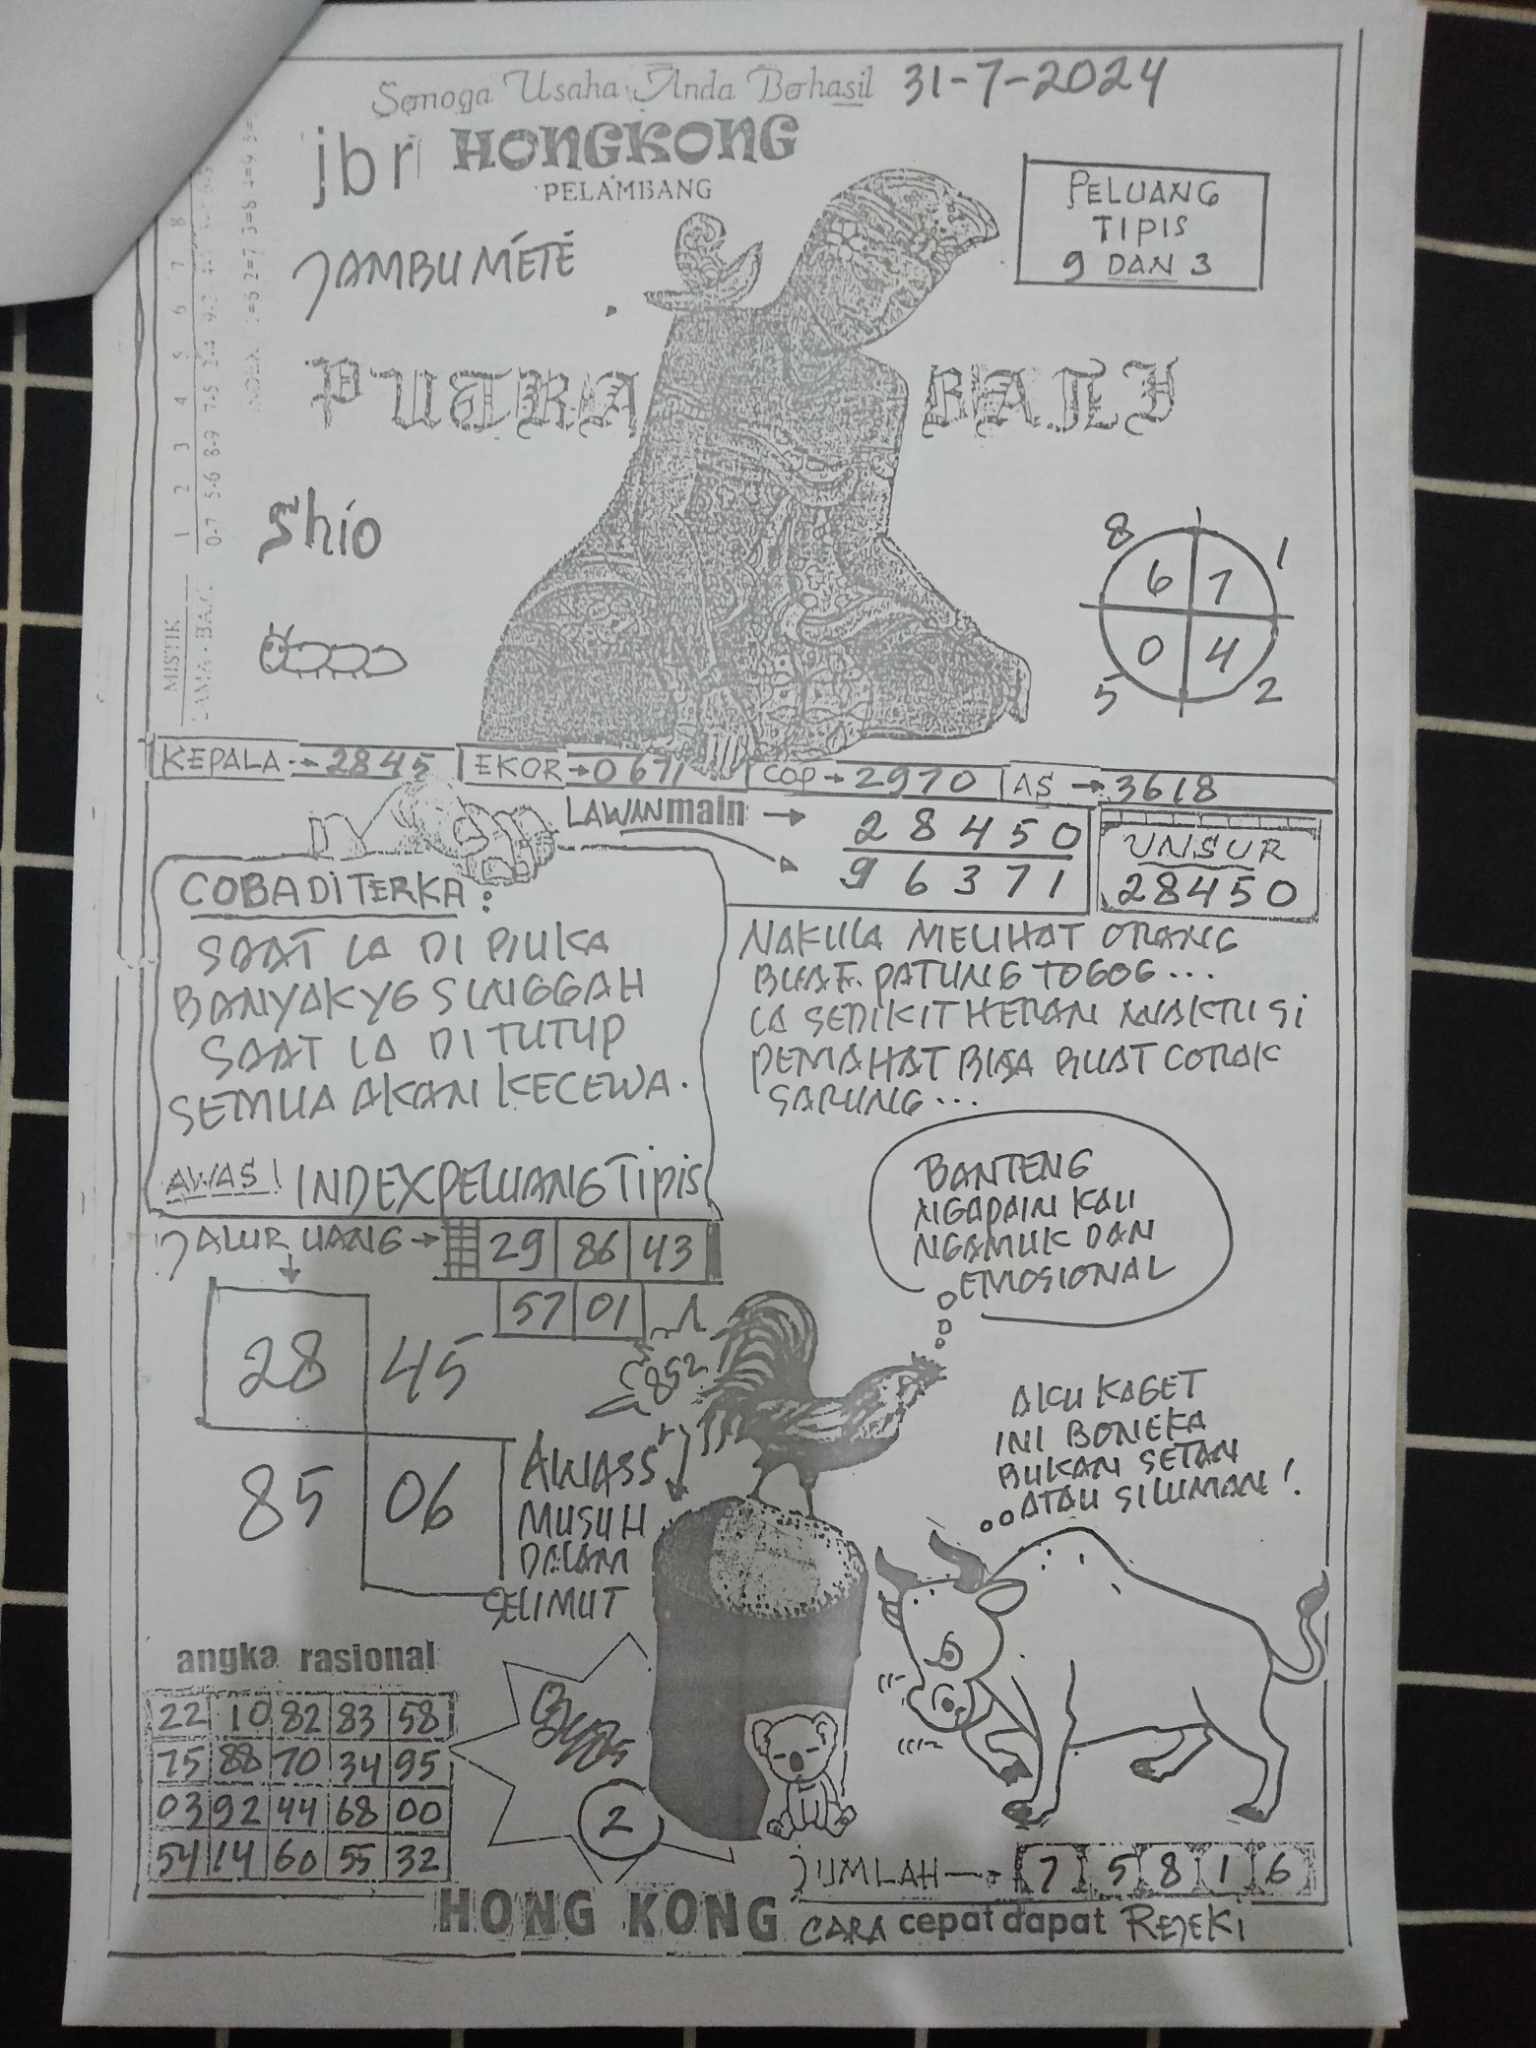 Semoga Usaha Anda Berhasil 31-7-2024
jbr HONGKONG
PELAMBANG
JAMBU METE
PELUANG
TIPIS
9 DAN 3
PUTRA BALI
Shio
MISTIK
1 2 3 4 5 6 7 8
0-7 5-6 8-9 7-5
INDEX
8 1
6 7
0 4
5 2
KEPALA → 2845 EKOR → 0671 COP → 2970 AS → 3618
LAWAN main → 28450
96371
UNSUR
28450
COBA DITERKA:
SAAT IA DI BUKA
BANYAK YG SINGGAH
SAAT IA DI TUTUP
SEMUA AKAN KECEWA.
AWAS! INDEX PELUANG Tipis
NAKULA MELIHAT ORANG
BUAT PATUNG TOGOG...
IA SEDIKIT HERAN WAKTU SI
PEMAHAT BISA BUAT CORAK
SARUNG...
JALUR UANG → 29 86 43
57 01
28 45
85 06
852
BANTENG
NGAPAIN KAU
NGAMUK DAN
EMOSIONAL
AKU KAGET
INI BONEKA
BUKAN SETAN
ATAU SILUMAN!
AWASS
MUSUH
DALAM
SELIMUT
angka rasional
22 10 82 83 58
75 88 70 34 95
03 92 44 68 00
54 14 60 55 32
2
JUMLAH → 7 5 8 1 6
HONG KONG CARA cepat dapat REJEKI